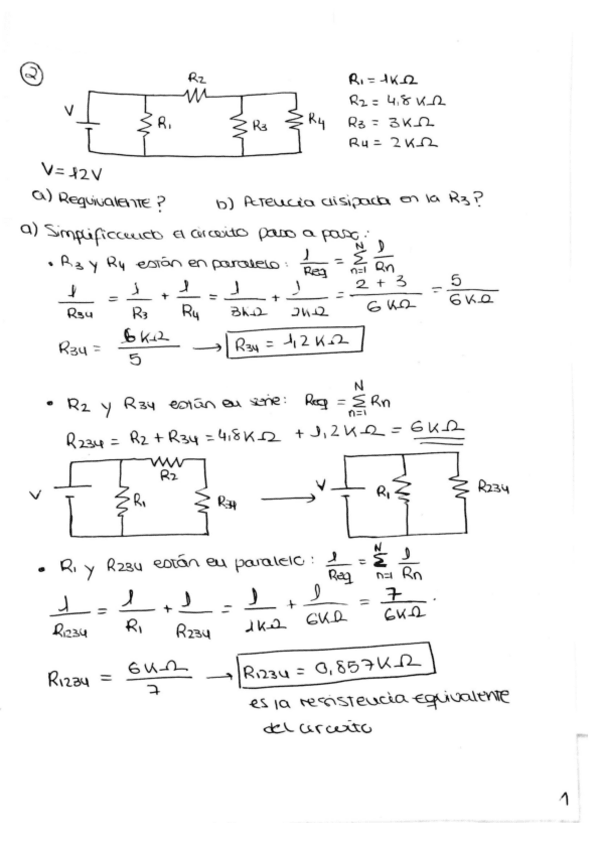 2
R2
V
R1
R3
R4
R1 = 1KΩ
R2 = 4,8 KΩ
R3 = 3KΩ
R4 = 2KΩ
V = 12V
a) Requivalente? b) Potencia disipada en la R3?
a) Simplificando el circuito paso a paso:
• R3 y R4 están en paralelo: 1/Req = Σ(n=1)^N 1/Rn
1/R34 = 1/R3 + 1/R4 = 1/3KΩ + 1/2KΩ = 2 + 3/6KΩ = 5/6KΩ
R34 = 6KΩ/5 → R34 = 1,2KΩ
• R2 y R34 están en serie: Req = Σ(n=1)^N Rn
R234 = R2 + R34 = 4,8KΩ + 1,2KΩ = 6KΩ
V
R2
R1
R34
→
V
R1
R234
• R1 y R234 están en paralelo: 1/Req = Σ(n=1)^N 1/Rn
1/R1234 = 1/R1 + 1/R234 = 1/1KΩ + 1/6KΩ = 7/6KΩ.
R1234 = 6KΩ/7 → R1234 = 0,857KΩ
es la resistencia equivalente
del circuito
1